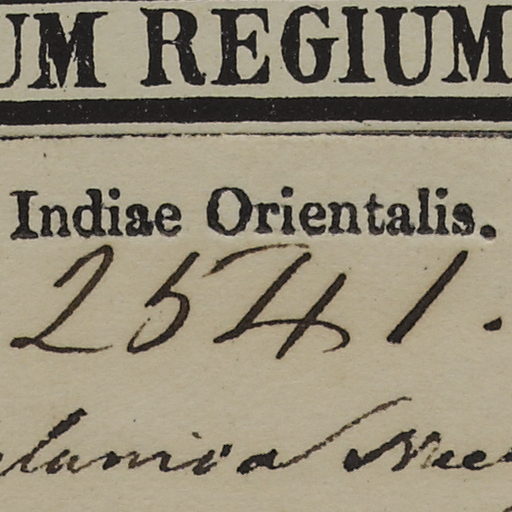 UM REGIUM
Indiae Orientalis.
2541.